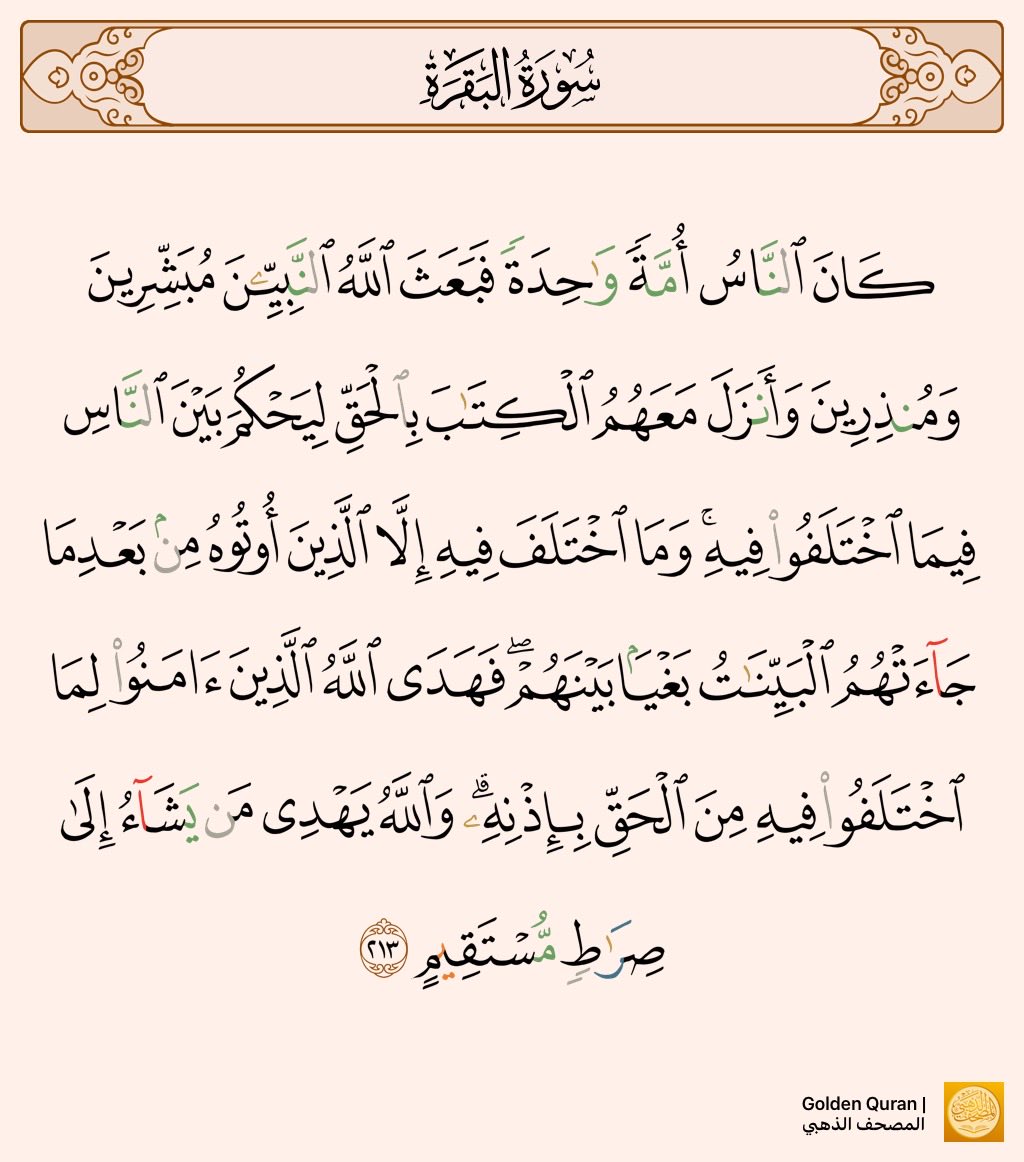 سُورَةُ البَقَرَةِ
كَانَ ٱلنَّاسُ أُمَّةً وَٰحِدَةً فَبَعَثَ ٱللَّهُ ٱلنَّبِيِّـۧنَ مُبَشِّرِينَ
وَمُنذِرِينَ وَأَنزَلَ مَعَهُمُ ٱلْكِتَـٰبَ بِٱلْحَقِّ لِيَحْكُمَ بَيْنَ ٱلنَّاسِ
فِيمَا ٱخْتَلَفُوا۟ فِيهِ ۚ وَمَا ٱخْتَلَفَ فِيهِ إِلَّا ٱلَّذِينَ أُوتُوهُ مِنۢ بَعْدِ مَا
جَآءَتْهُمُ ٱلْبَيِّنَـٰتُ بَغْيَۢا بَيْنَهُمْ ۖ فَهَدَى ٱللَّهُ ٱلَّذِينَ ءَامَنُوا۟ لِمَا
ٱخْتَلَفُوا۟ فِيهِ مِنَ ٱلْحَقِّ بِإِذْنِهِۦ ۗ وَٱللَّهُ يَهْدِى مَن يَشَآءُ إِلَىٰ
صِرَٰطٍ مُّسْتَقِيمٍ ٢١٣
Golden Quran |
المصحف الذهبي